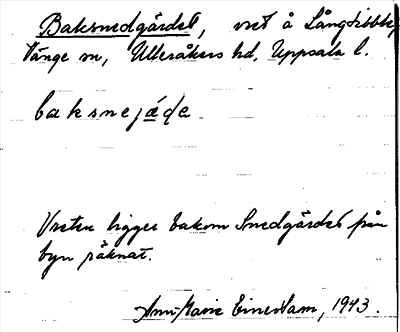 Baksmedgärdet, vret å Långtibble,
Vänge sn, Ulleråkers hd, Uppsala l.
baksnejäḍe
Vreten ligger bakom Smedgärdet från
byn räknat.
Ann-Marie Einerstam, 1943.